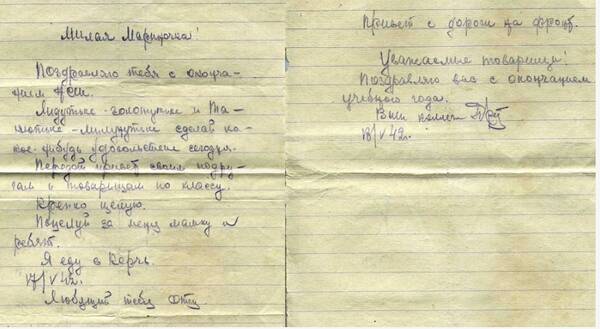 Милая Мариночка!
Поздравляю тебя с оконча-
нием НСШ.
Лидутке-голопупке и Та-
нютке-лилипутке сделай ка-
кое-нибудь удовольствие сегодня.
Передай привет своим подру-
гам и товарищам по классу.
Крепко целую.
Поцелуй за меня мамку и
ребят.
Я еду в Керчь.
17/V 42г.
Любящий тебя отец
Привет с дороги на фронт.
Уважаемые товарищи!
Поздравляю вас с окончанием
учебного года.
Ваш
18/V 42г.